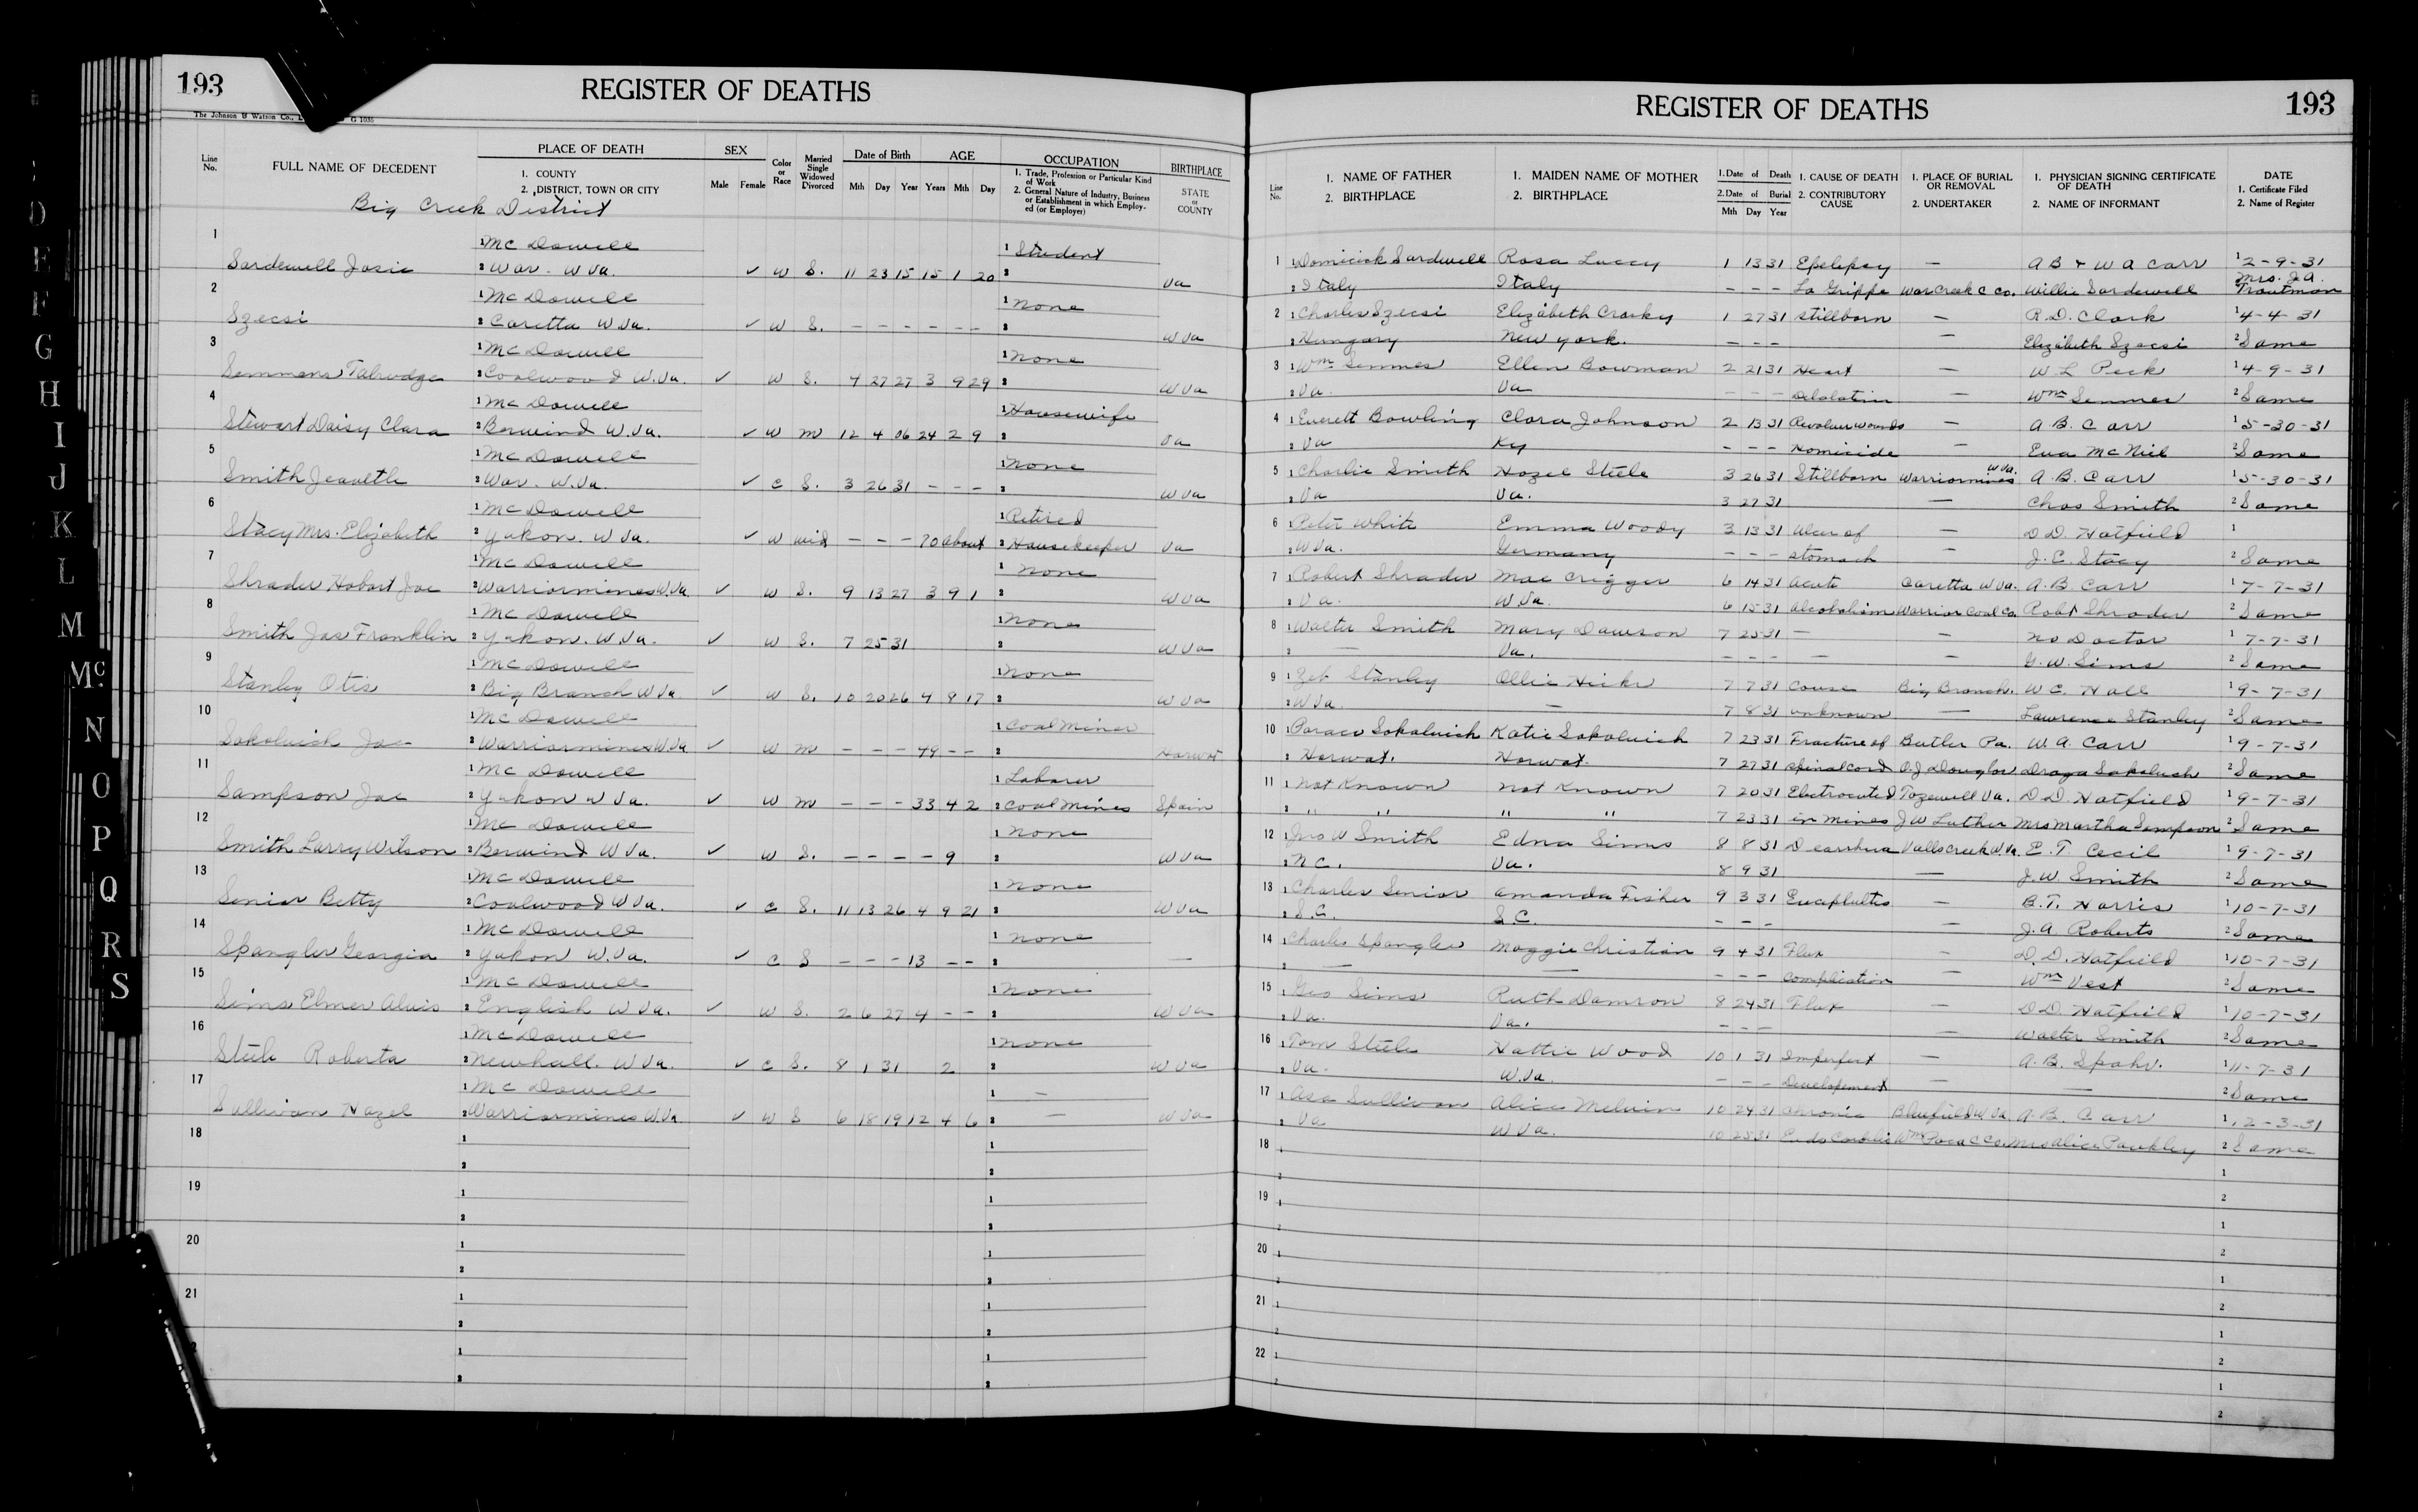 193
REGISTER OF DEATHS
The Johnson & Watson Co., G 1035
Line No.
FULL NAME OF DECEDENT
PLACE OF DEATH
1. COUNTY
2. DISTRICT, TOWN OR CITY
SEX
Male Female
Color or Race
Married Single Widowed Divorced
Date of Birth
Mth Day Year
AGE
Years Mth Day
OCCUPATION
1. Trade, Profession or Particular Kind of Work
2. General Nature of Industry, Business or Establishment in which Employed (or Employer)
BIRTHPLACE
STATE or COUNTY
Big Creek District
1 1 Mc Dowell 1 Student
Sardewell Josie 2 War. W Va. ✓ W S. 11 23 15 15 1 20 2 Va
2 1 Mc Dowell 1 None
Szecsi 2 Caretta W Va. ✓ W S. – – – – – – 2 W Va
3 1 Mc Dowell 1 None
Semmens Talmdge 2 Coalwood W.Va. ✓ W S. 4 27 27 3 9 29 2 W Va
4 1 Mc Dowell 1 Housewife
Stewart Daisy Clara 2 Berwind W.Va. ✓ W M 12 4 06 24 2 9 2 Va
5 1 Mc Dowell 1 None
Smith 2 War. W.Va. ✓ C S. 3 26 31 – – – 2 W Va
6 1 Mc Dowell 1 Retired
Stacy Mrs. Elizabeth 2 Yukon. W Va. ✓ W wid – – – 70 about 2 Housekeeper Va
7 1 Mc Dowell 1 None
Shrader Hobart Joe 2 Warriormines W.Va ✓ W S. 9 13 27 3 9 1 2 W Va
8 1 Mc Dowell 1 None
Smith Jas Franklin 2 Yukon. W.Va. ✓ W S. 7 25 31 2 W Va
9 1 Mc Dowell 1 None
Stanley Otis 2 Big Branch W Va ✓ W S. 10 20 26 4 8 17 2 W Va
10 1 Mc Dowell 1 Coal Miner
Sokolvich Joe 2 Warriormines W.Va ✓ W M – – – 49 – – 2 Horwat
11 1 Mc Dowell 1 Laborer
Sampson Joe 2 Yukon W Va. ✓ W M – – – 33 4 2 2 Coal Mines Spain
12 1 Mc Dowell 1 None
Smith Larry Wilson 2 Berwind W Va. ✓ W S. – – – – 9 2 W Va
13 1 Mc Dowell 1 None
Senior Betty 2 Coalwood W Va. ✓ C S. 11 13 26 4 9 21 2 W Va
14 1 Mc Dowell 1 None
Spangler Georgia 2 Yukon W.Va. ✓ C S – – – 13 – – 2 —
15 1 Mc Dowell 1 None
Sims Elmer Alvis 2 English W Va. ✓ W S. 2 6 27 4 – – 2 W Va
16 1 Mc Dowell 1 None
Steele Roberta 2 Newhall. W Va. ✓ C S. 8 1 31 2 2 W Va
17 1 Mc Dowell 1 –
Sullivan Hazel 2 Warriormines W.Va. ✓ W S 6 18 19 12 4 6 2 — W Va
18 1 1
2 2
19 1 1
2 2
20 1 1
2 2
21 1 1
2 2
1 1
2 2
D
E
F
G
H
I
J
K
L
M
Mc
N
O
P
Q
R
S
REGISTER OF DEATHS
193
Line No.
1. NAME OF FATHER
2. BIRTHPLACE
1. MAIDEN NAME OF MOTHER
2. BIRTHPLACE
1. Date of Death
2. Date of Burial
Mth Day Year
1. CAUSE OF DEATH
2. CONTRIBUTORY CAUSE
1. PLACE OF BURIAL OR REMOVAL
2. UNDERTAKER
1. PHYSICIAN SIGNING CERTIFICATE OF DEATH
2. NAME OF INFORMANT
DATE
1. Certificate Filed
2. Name of Register
1 1 Dominick Sardwell Rosa Luccy 1 13 31 Epelipsy – A B & W A Carr 1 2-9-31
2 Italy Italy – – – La Grippe War Creek C Co. Willie Sardewell Mrs. J.A. Troutman
2 1 Charles Szecsi Elizabeth Crasky 1 27 31 Stillborn – R.D. Clark 1 4-4-31
2 Hungary New York. – – – – Elizabeth Szecsi 2 Same
3 1 Wm Semmes Ellen Bowman 2 21 31 Heart – W L Peck 1 4-9-31
2 Va. Va – – – Delolation – Wm Semmes 2 Same
4 1 Everett Bowling Clara Johnson 2 13 31 Revolver wounds – A.B. Carr 1 5-30-31
2 Va Ky – – – Homicide – Eva McNiel 2 Same
5 1 Charlie Smith Hazel Steele 3 26 31 Stillborn Warriormines W Va. A.B. Carr 1 5-30-31
2 Va Va. 3 27 31 — Chas Smith 2 Same
6 1 Peter White Emma Woody 3 13 31 Ulcer of – D D. Hatfield 1
2 W Va. Germany – – – stomach – J. C Stacy 2 Same
7 1 Robert Shrader Mae Crigger 6 14 31 Acute Caretta W Va. A.B. Carr 1 7-7-31
2 Va. W.Va. 6 15 31 Alcoholism Warrior Coal Co. Robt Shrader 2 Same
8 1 Walter Smith Mary Dawson 7 25 31 — – No Doctor 1 7-7-31
2 — Va. – – – – – G.W. Sims 2 Same
9 1 Zeb Stanley Ollie Hicks 7 7 31 Cause Big Branch. W C. Hall 1 9-7-31
2 W Va – 7 8 31 unknown — Lawrence Stanley 2 Same
10 1 Paraco Sokolvich Katie Sokolvich 7 23 31 Fracture of Butler Pa. W.A. Carr 1 9-7-31
2 Horwat. Horwat. 7 27 31 Spinal cord O.J Douglas Draga Sokolvich 2 Same
11 1 Not Known Not Known 7 20 31 Electrocuted Tazewell Va. D.D. Hatfield 1 9-7-31
2 " " " " 7 23 31 in mines J W Luther Mrs Martha Sampson 2 Same
12 1 Jno W Smith Edna Sims 8 8 31 Dearrhea Valls Creek W.Va. E.T. Cecil 1 9-7-31
2 N.C. Va. 8 9 31 — J.W. Smith 2 Same
13 1 Charles Senior Amanda Fisher 9 3 31 – B.T. Harris 1 10-7-31
2 S.C. S.C. – – – – J.A Roberts 2 Same
14 1 Charles Spangler Maggie Christian 9 4 31 Flux – D.D. Hatfield 1 10-7-31
2 — — – – – Complication – Wm Vest 2 Same
15 1 Geo Sims Ruth Damron 8 24 31 Flux – D.D. Hatfield 1 10-7-31
2 Va. Va. – – – – Walter Smith 2 Same
16 1 Tom Steele Hattie Wood 10 1 31 Imperfect – A.B. Spahr. 1 11-7-31
2 Va. W.Va. – – – Developement – — 2 Same
17 1 Asa Sullivan Alice Melvin 10 24 31 Chronic Bluefield W Va A.B. Carr 1 12-3-31
2 Va W Va. 10 25 31 Wm Poca C Co. Mrs Alice Paukley 2 Same
18 1 1
2 2
19 1 1
2 2
20 1 1
2 2
21 1 1
2 2
22 1 1
2 2